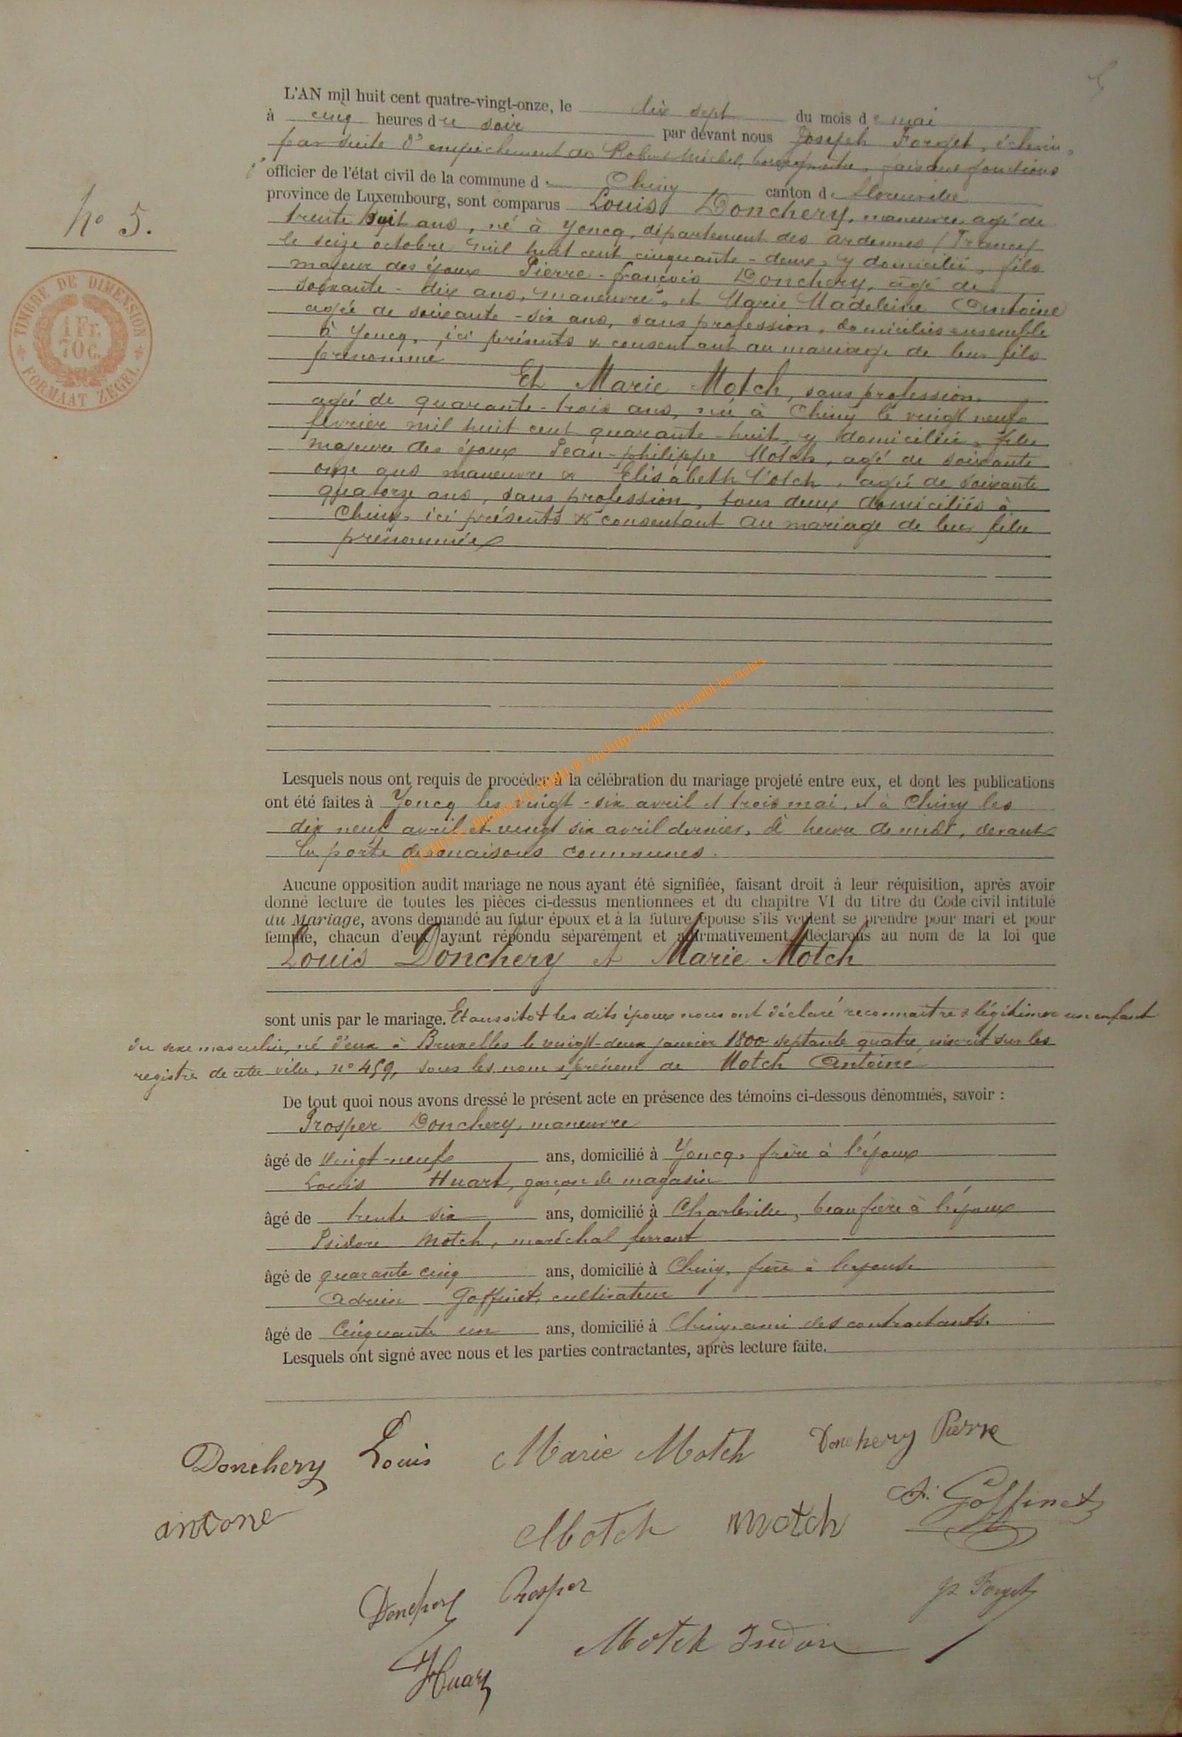 L'AN mil huit cent quatre-vingt-onze, le dix sept du mois de mai
à cinq heures du soir par devant nous Joseph Forget, échevin,
par suite d'empêchement de Robert Michel, bourgmestre, faisant fonctions
d'officier de l'état civil de la commune de Chiny canton de Florenville
province de Luxembourg, sont comparus Louis Donchery, manœuvre, agé de
trente huit ans, né à Yoncq, département des Ardennes (France)
le seize octobre mil huit cent cinquante-deux, y domicilié, fils
majeur des époux Pierre-François Donchery, agé de
soixante-dix ans, manœuvre, et Marie Madeleine Antoine
agée de soixante-six ans, sans profession, domiciliés ensemble
à Yoncq, ici présents & consentant au mariage de leur fils
prénommé
Et Marie Motch, sans profession,
agée de quarante-trois ans, née à Chiny le vingt neuf
février mil huit cent quarante-huit, y domiciliée, fille
majeure des époux Jean-philippe Motch, agé de soixante
onze ans manœuvre & Elisabeth, agée de soixante
quatorze ans, sans profession, tous deux domiciliés à
Chiny, ici présents & consentant au mariage de leur fille
prénommée
N° 5.
TIMBRE DE DIMENSION
1 Fr.
70 C.
FORMAAT ZEGEL
Lesquels nous ont requis de procéder à la célébration du mariage projeté entre eux, et dont les publications
ont été faites à Yoncq les vingt-six avril et trois mai, et à Chiny les
dix neuf avril et vingt six avril dernier, à heure de midi, devant
la porte de maisons communes.
Aucune opposition audit mariage ne nous ayant été signifiée, faisant droit à leur réquisition, après avoir
donné lecture de toutes les pièces ci-dessus mentionnées et du chapitre VI du titre du Code civil intitulé
du Mariage, avons demandé au futur époux et à la future épouse s'ils veulent se prendre pour mari et pour
femme, chacun d'eux ayant répondu séparément et affirmativement, déclarons au nom de la loi que
Louis Donchery et Marie Motch
sont unis par le mariage. Et aussitôt les dits époux nous ont déclaré reconnaitre & légitimer un enfant
du sexe masculin, né d'eux à Bruxelles le vingt-deux janvier 1800 septante quatre, inscrit sur les
registre de cette ville, n° 459, sous les nom & prénom de Motch Antoine
De tout quoi nous avons dressé le présent acte en présence des témoins ci-dessous dénommés, savoir :
Prosper Donchery, manœuvre
âgé de vingt-neuf ans, domicilié à Yoncq, frère à l'époux
Louis Huart, garçon de magasin
âgé de trente six ans, domicilié à Charleville, beau frère à l'époux
Isidore Motch, maréchal ferrant
âgé de quarante cinq ans, domicilié à Chiny, frère à l'épouse
Adrien Goffinet, cultivateur
âgé de Cinquante un ans, domicilié à Chiny, ami des contractants.
Lesquels ont signé avec nous et les parties contractantes, après lecture faite.
Donchery Louis Marie Motch Donchery Pierre
antoine Motch motch A. Goffinet
Donchery Prosper Jh Forget
Motch Isidore
Huart